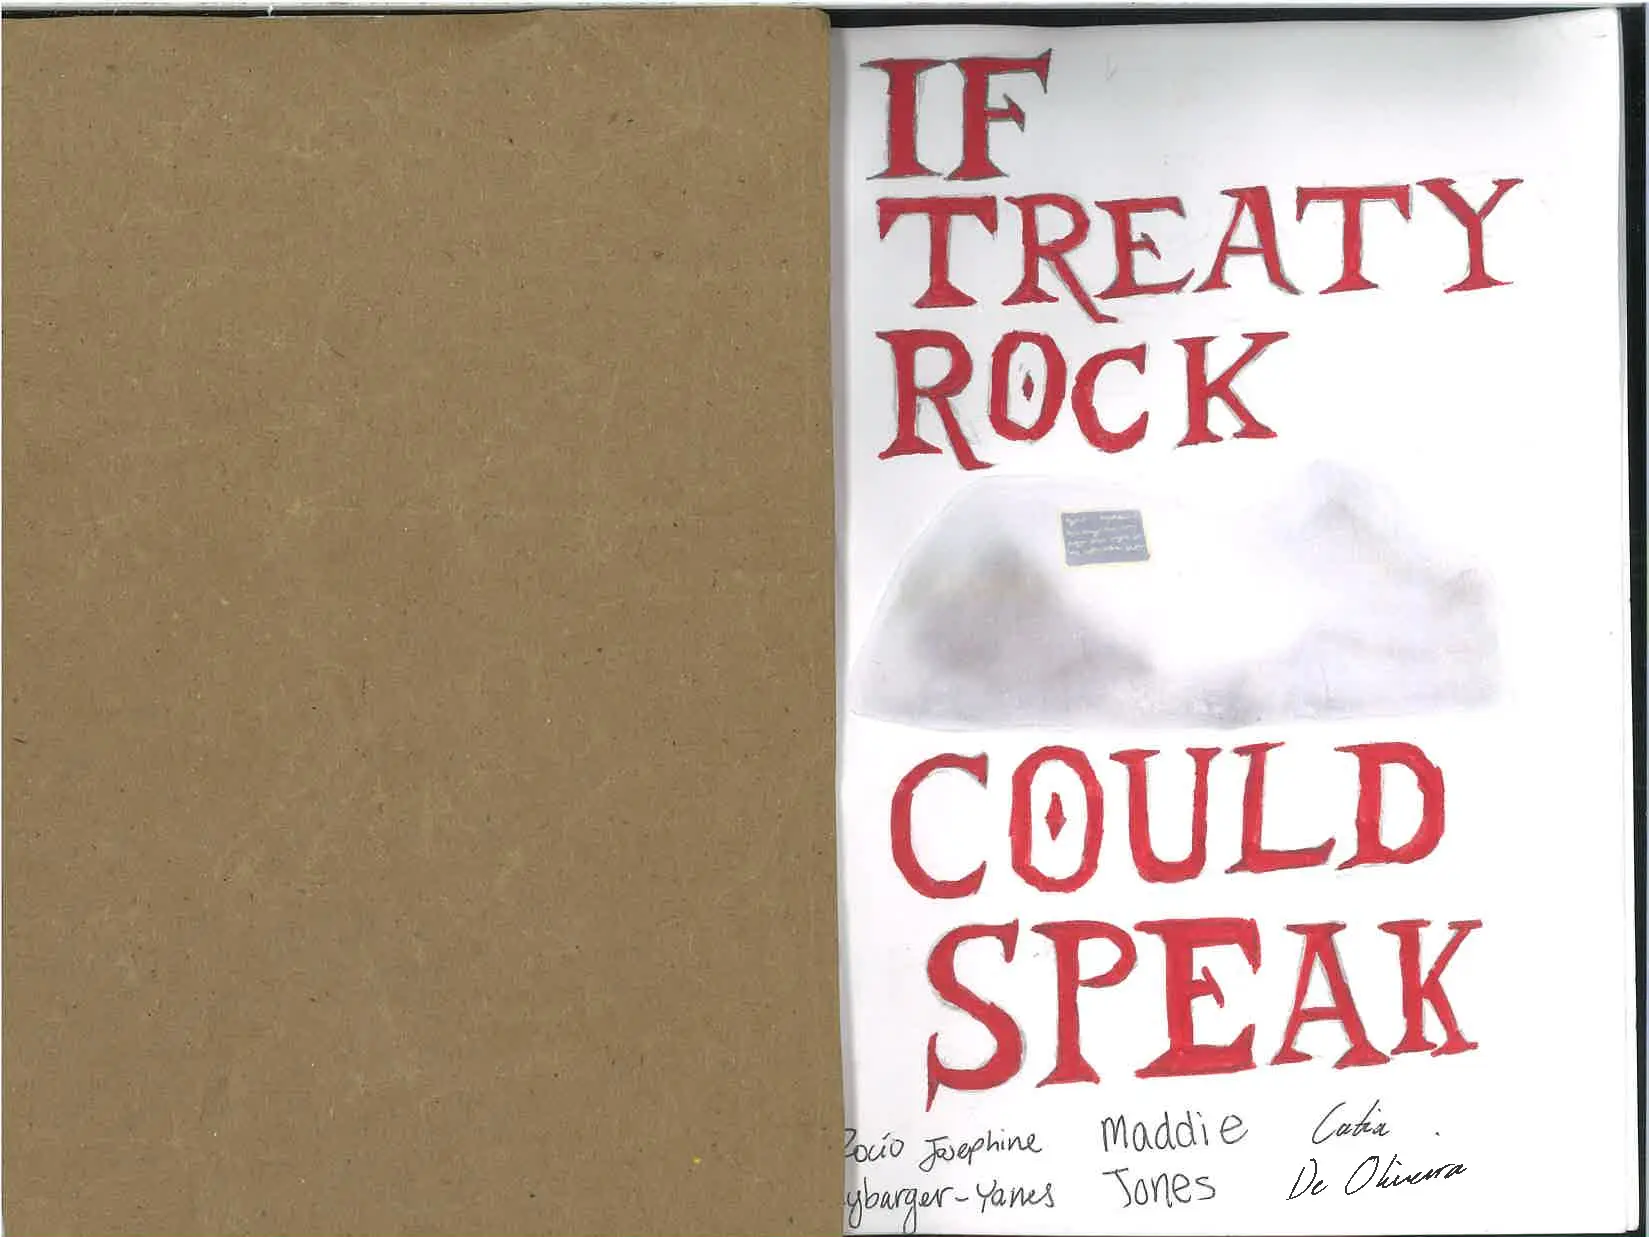 IF
TREATY
ROCK
COULD
SPEAK
ocío Josephine
ybarger-Yanes
Maddie
Jones
Catia
De Oliveira